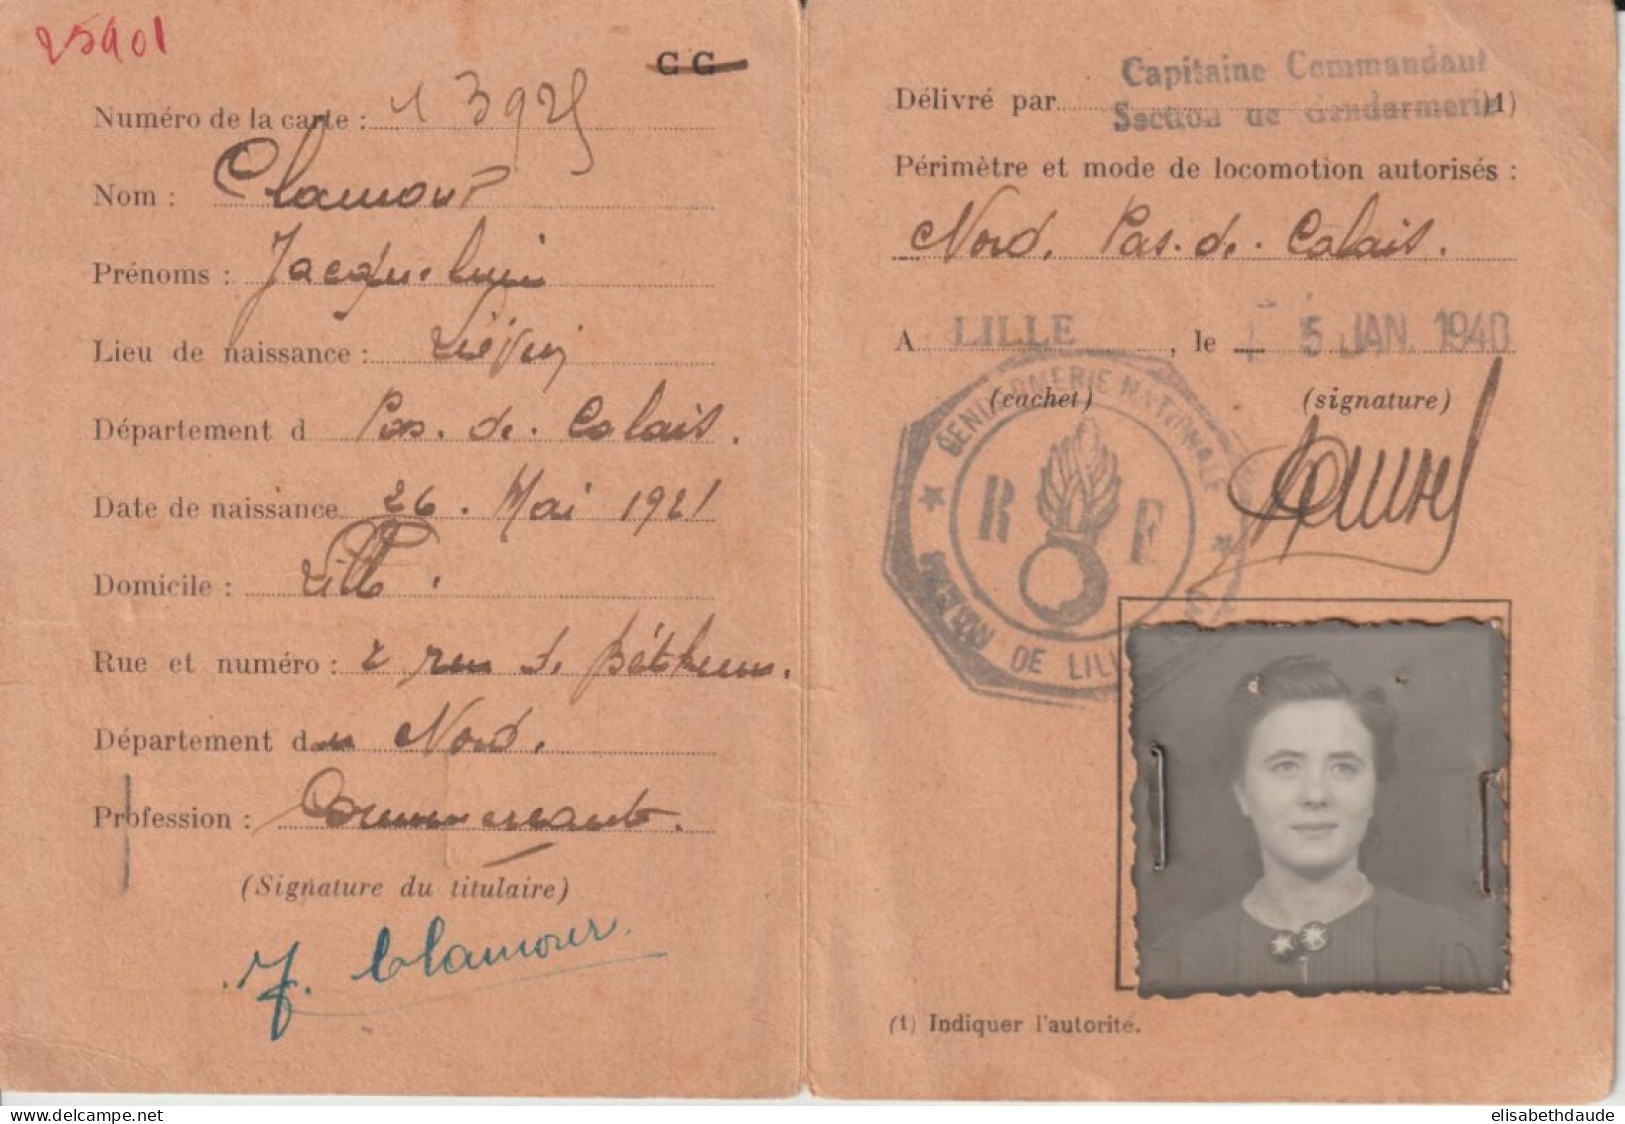 25901
C G
Numéro de la carte : 13925
Nom : Clamour
Prénoms : Jacqueline
Lieu de naissance : Liévin
Département d Pas-de-Calais.
Date de naissance 26. Mai 1921
Domicile : Lille.
Rue et numéro : 2 rue de Béthune.
Département du Nord.
Profession : Commerçante.
(Signature du titulaire)
J. Clamour.
Délivré par Capitaine Commandant
Section de Gendarmerie (1)
Périmètre et mode de locomotion autorisés :
Nord. Pas-de-Calais.
A LILLE, le 5 JAN. 1940
(cachet) (signature)
GENDARMERIE NATIONALE
R F
SECTION DE LILLE
(1) Indiquer l'autorité.
delcampe.net
elisabethdaude